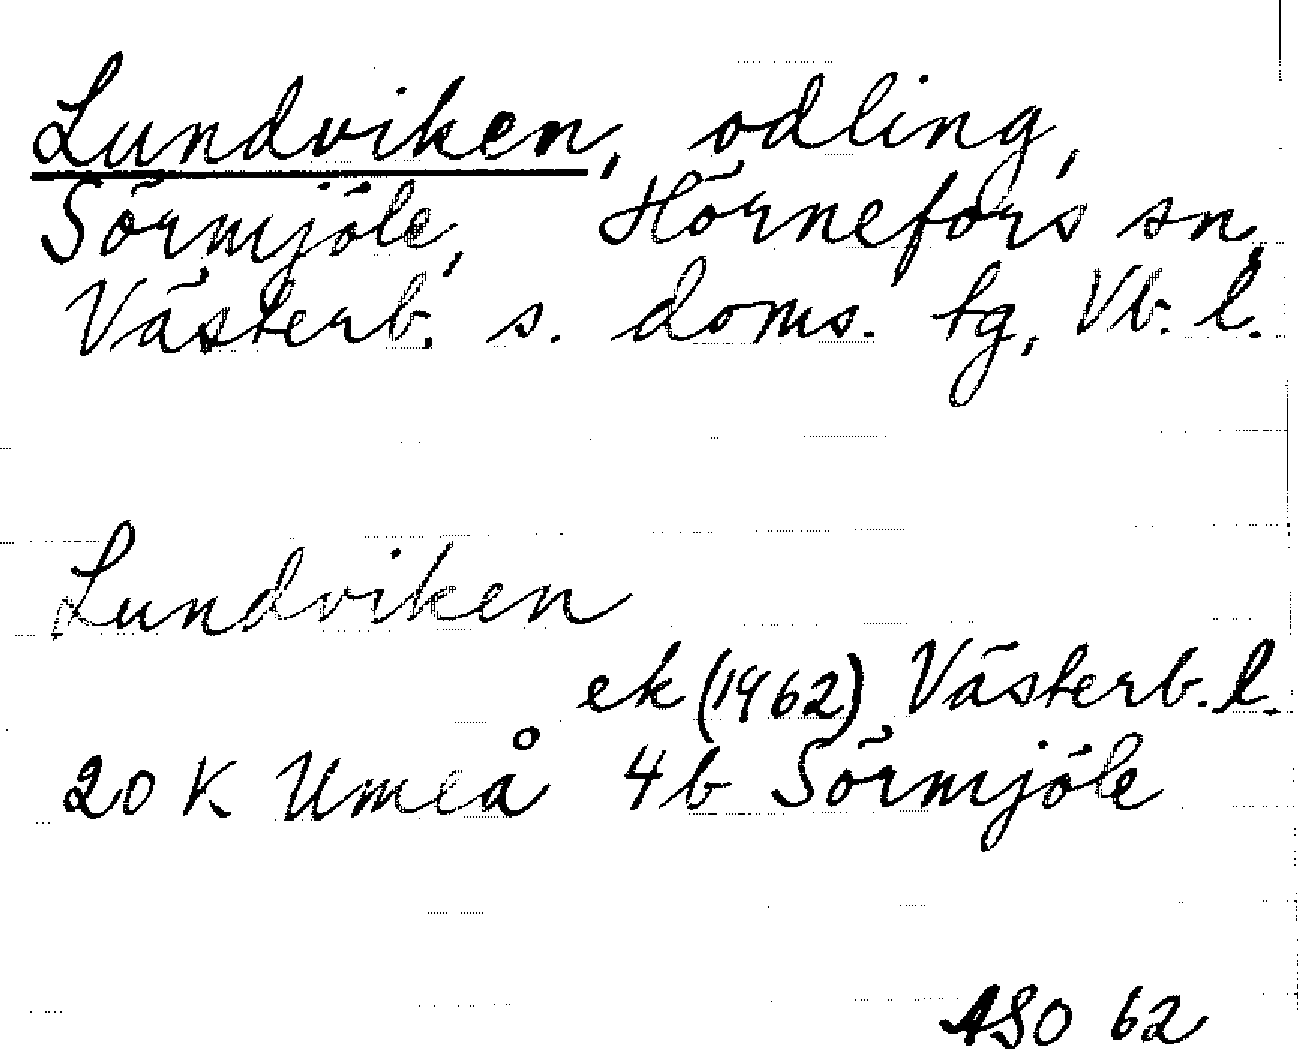 Lundviken, odling,
Sörmjöle, Hörnefors sn,
Västerb. s. doms. tg, Vb. l.
Lundviken
ek (1962) Västerb. l.
20 K Umeå 4b Sörmjöle
ASO 62